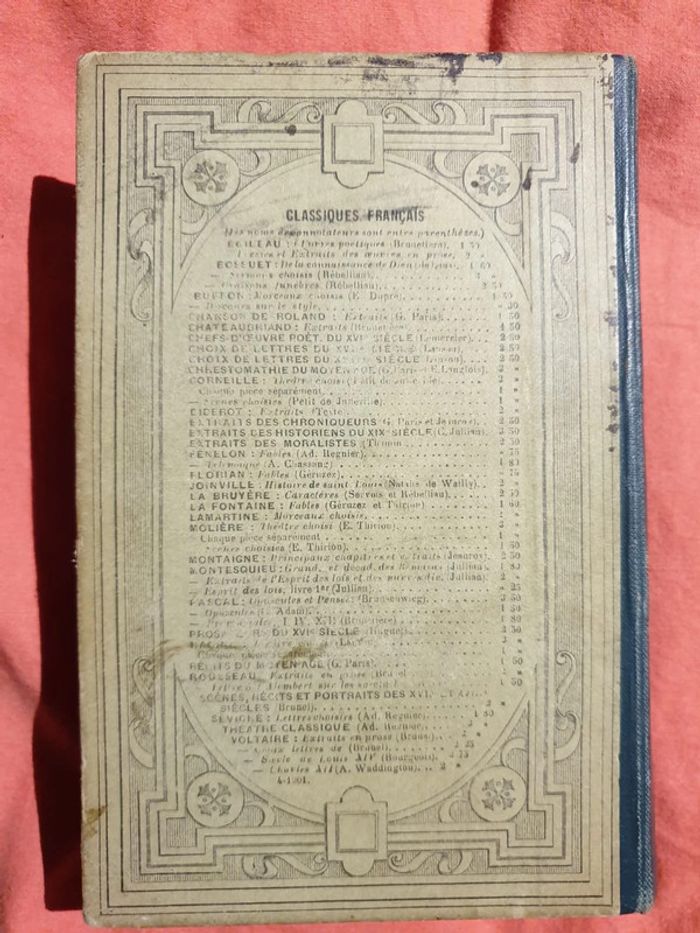 CLASSIQUES FRANÇAIS
(Les noms des annotateurs sont entre parenthèses.)
BOILEAU : Œuvres poétiques (Brunetière). 1 50
— et Extraits des œuvres en prose. 2 »
BOSSUET : De la connaissance de Dieu 1 60
— Sermons choisis (Rébelliau). »
— Oraisons funèbres (Rébelliau). 2 50
BUFFON : Morceaux choisis (E. Dupré). 1 50
— Discours sur le style. » 30
CHANSON DE ROLAND : Extraits (G. Paris). 1 50
CHATEAUBRIAND : Extraits (Brunetière). 1 50
CHEFS-D'ŒUVRE POÉT. DU XVIe SIÈCLE (Lemercier). 2 50
CHOIX DE LETTRES DU SIÈCLE (Lanson). 2 50
CHOIX DE LETTRES DU SIÈCLE (Lanson). 2 50
CHRESTOMATHIE DU MOYEN AGE (G. Paris et E. Langlois). 3 »
CORNEILLE : Théâtre choisi (Petit de Julleville). »
Chaque pièce séparément. 1 »
— Scènes choisies (Petit de Julleville). 1 »
DIDEROT : Extraits (Texte). 2 »
EXTRAITS DES CHRONIQUEURS (G. Paris et Jeanroy). 2 50
EXTRAITS DES HISTORIENS DU XIXe SIÈCLE (C. Jullian). 3 50
EXTRAITS DES MORALISTES (Thamin). 2 50
FÉNELON : Fables (Ad. Regnier). » 75
— Télémaque (A. Chassang). 1 80
FLORIAN : Fables (Géruzez). » 75
JOINVILLE : Histoire de saint Louis (Natalis de Wailly). 2 »
LA BRUYÈRE : Caractères (Servois et Rébelliau). 2 50
LA FONTAINE : Fables (Géruzez et Thirion). 1 60
LAMARTINE : Morceaux choisis. »
MOLIÈRE : Théâtre choisi (E. Thirion). 3 »
Chaque pièce séparément. 1 »
— Scènes choisies (E. Thirion). 1 50
MONTAIGNE : Principaux chapitres et extraits (Jeanroy). 2 50
MONTESQUIEU : Grand. et décad. des Romains (Jullian). 1 80
— Extraits de l'Esprit des lois et des œuvres div. (Jullian). 2 »
— Esprit des lois, livre 1er (Jullian). » 25
PASCAL : Opuscules et Pensées (Brunschvicg). 3 50
— Opuscules (C. Adam). 1 50
— Provinciales, I, IV, XIII (Brunetière). 1 80
PROSATEURS DU XVIe SIÈCLE (Huguet). 2 50
Chaque pièce séparément.
RÉCITS DU MOYEN AGE (G. Paris). 1 50
ROUSSEAU : Extraits en prose (Brunel)
— Lettre à d'Alembert sur les spectacles 1 50
SCÈNES, RÉCITS ET PORTRAITS DES
SIÈCLES (Brunel). 2 »
SÉVIGNÉ : Lettres choisies (Ad. Regnier). 1 80
THÉATRE CLASSIQUE (Ad. Regnier). 3 »
VOLTAIRE : Extraits en prose (Brunel). 2 »
— Choix de lettres (Brunel). 2 25
— Siècle de Louis XIV (Bourgeois). 2 75
— Charles XII (A. Waddington). 2 »
4-1901.